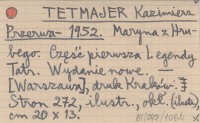 TETMAJER Kazimierz
Przerwa- 1952. Maryna z Hru-
bego. Część pierwsza Legendy
Tatr. Wydanie nowe. —
[Warszawa], druk Kraków.
Stron 272, ilustr., okł. (ilustr.),
cm 20 x 13.